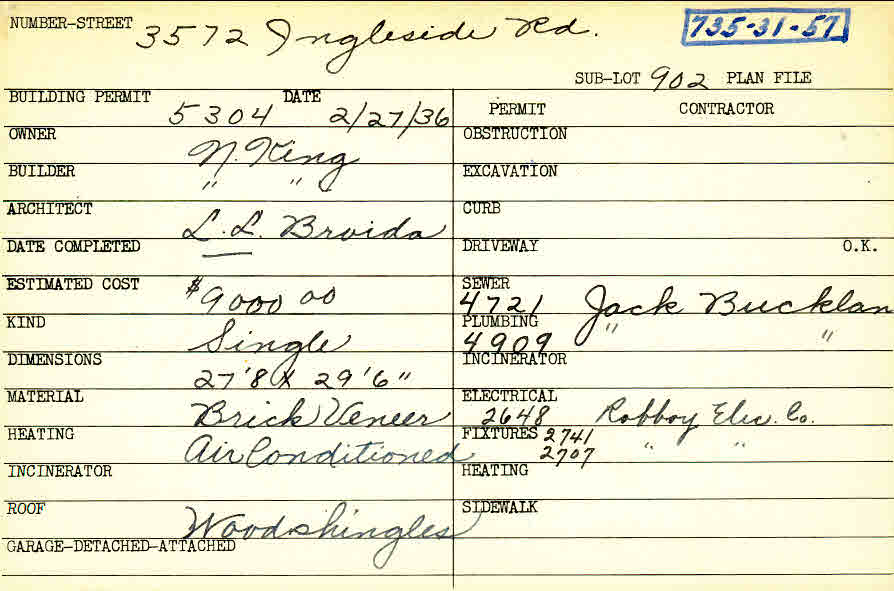 NUMBER-STREET 3572 Ingleside Rd.
735-31-57
SUB-LOT 902 PLAN FILE
BUILDING PERMIT 5304 DATE 2/27/36
PERMIT CONTRACTOR
OWNER N. King
OBSTRUCTION
BUILDER " "
EXCAVATION
ARCHITECT L. L. Broida
CURB
DATE COMPLETED —
DRIVEWAY O.K.
ESTIMATED COST $9000 00
SEWER 4721 Jack Bucklan
KIND Single
PLUMBING 4909 " "
DIMENSIONS 27'8 X 29'6"
INCINERATOR
MATERIAL Brick Veneer
ELECTRICAL 2648 Robboy Elec. Co.
HEATING Air Conditioned
FIXTURES 2741 " "
2707
INCINERATOR
HEATING
ROOF Woodshingles
SIDEWALK
GARAGE-DETACHED-ATTACHED